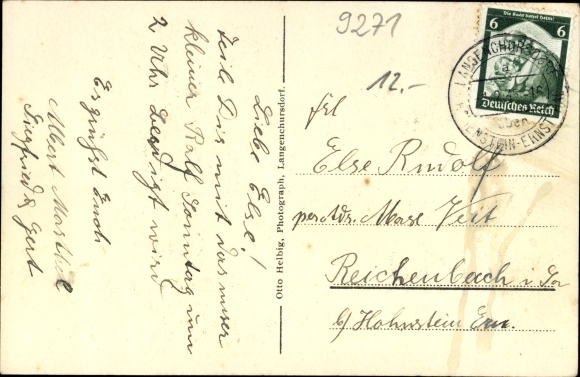 Liebe Else!
Teile Dir mit das unser
kleiner Ralf Sonntag um
2 Uhr beerdigt wird
Es grüsst Euch
Albert Marthel
Siegfried & Gert
Otto Helbig, Photograph, Langenchursdorf.
9271
12.-
6 6
Deutsches Reich
LANGENCHURSDORF
HOHENSTEIN-ERNSTTHAL
Frl
Else Rudolf
per Adr. Max Veit
Reichenbach i. Sa
b/ Hohnstein Ern.